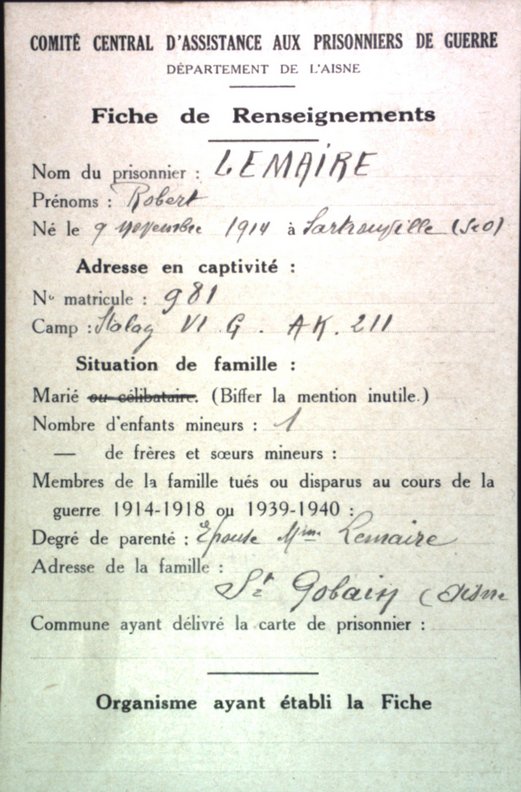 COMITÉ CENTRAL D'ASSISTANCE AUX PRISONNIERS DE GUERRE
DÉPARTEMENT DE L'AISNE
Fiche de Renseignements
Nom du prisonnier : LEMAIRE
Prénoms : Robert
Né le 9 novembre 1914 à Sartrouville (S&O)
Adresse en captivité :
No matricule : 981
Camp : Stalag VI G. AK. 211
Situation de famille :
Marié ou célibataire. (Biffer la mention inutile.)
Nombre d'enfants mineurs : 1
— de frères et sœurs mineurs :
Membres de la famille tués ou disparus au cours de la
guerre 1914-1918 ou 1939-1940 :
Degré de parenté : Epouse Mme Lemaire
Adresse de la famille :
St Gobain (Aisne
Commune ayant délivré la carte de prisonnier :
Organisme ayant établi la Fiche